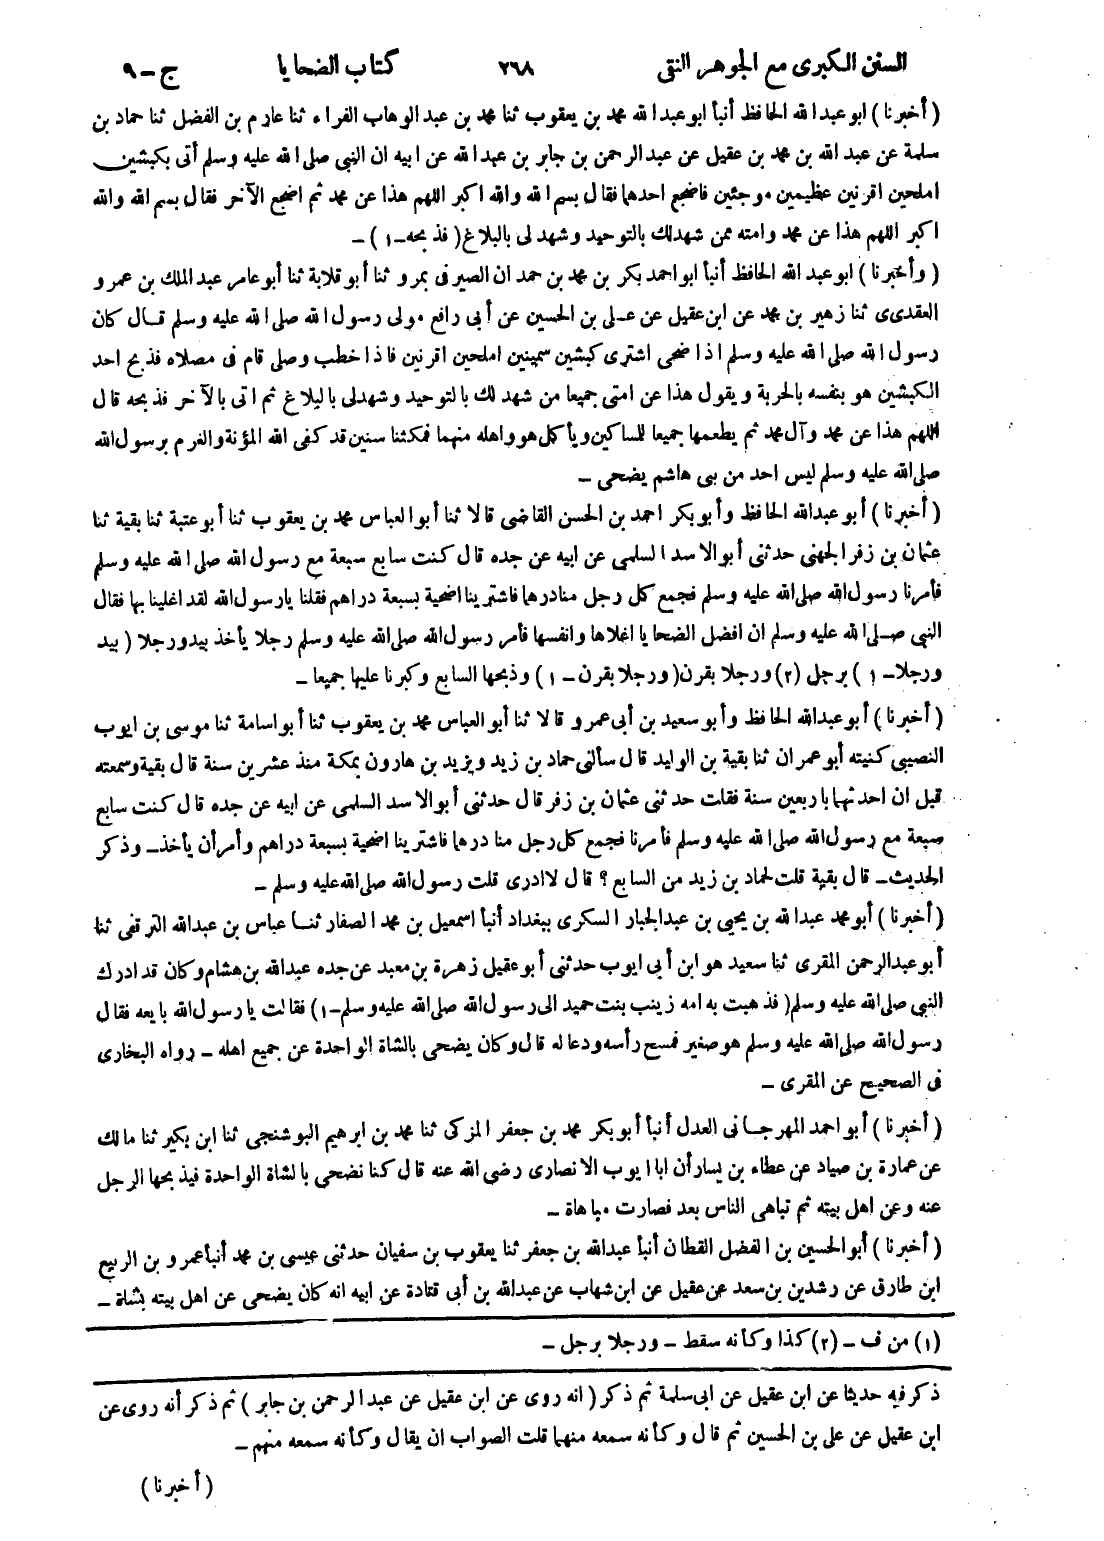 السنن الكبرى مع الجوهر النقى ٢٦٨ كتاب الضحايا ج - ٩
( أخبرنا ) ابو عبد الله الحافظ أنبأ ابو عبد الله محمد بن يعقوب ثنا محمد بن عبد الوهاب الفراء ثنا عارم بن الفضل ثنا حماد بن
سلمة عن عبد الله بن محمد بن عقيل عن عبد الرحمن بن جابر بن عبد الله عن ابيه ان النبى صلى الله عليه وسلم أتى بكبشين
املحين اقرنين عظيمين موجئين فاضجع احدهما فقال بسم الله والله اكبر اللهم هذا عن محمد ثم اضجع الآخر فقال بسم الله والله
اكبر اللهم هذا عن محمد وامته ممن شهد لك بالتوحيد وشهد لى بالبلاغ ( فذبحه - ١ ) -
( وأخبرنا ) ابو عبد الله الحافظ أنبأ ابو احمد بكر بن محمد بن حمد ان الصيرفى بمرو ثنا أبو قلابة ثنا أبو عامر عبد الملك بن عمرو
العقدى ثنا زهير بن محمد عن ابن عقيل عن على بن الحسين عن أبى رافع مولى رسول الله صلى الله عليه وسلم قال كان
رسول الله صلى الله عليه وسلم اذا ضحى اشترى كبشين سمينين املحين اقرنين فاذا خطب وصلى قام فى مصلاه فذبح احد
الكبشين هو بنفسه بالحربة ويقول هذا عن امتى جميعا من شهد لك بالتوحيد وشهد لى بالبلاغ ثم اتى بالآخر فذبحه قال
اللهم هذا عن محمد وآل محمد ثم يطعمها جميعا للمساكين ويأكل هو واهله منهما فمكثنا سنين قد كفى الله المؤنة والغرم برسول الله
صلى الله عليه وسلم ليس احد من بنى هاشم يضحى -
( أخبرنا ) أبو عبد الله الحافظ وأبو بكر احمد بن الحسن القاضى قالا ثنا أبو العباس محمد بن يعقوب ثنا أبو عتبة ثنا بقية ثنا
عثمان بن زفر الجهنى حدثنى أبو الاسد السلمى عن ابيه عن جده قال كنت سابع سبعة مع رسول الله صلى الله عليه وسلم
فأمرنا رسول الله صلى الله عليه وسلم فجمع كل رجل منا درهما فاشترينا اضحية بسبعة دراهم فقلنا يا رسول الله لقد اغلينا بها فقال
النبى صلى الله عليه وسلم ان افضل الضحايا اغلاها وانفسها فأمر رسول الله صلى الله عليه وسلم رجلا يأخذ بيد ورجلا ( بيد
ورجلا - ١ ) برجل (٢) ورجلا بقرن ( ورجلا بقرن - ١ ) وذبحها السابع وكبرنا عليها جميعا -
( أخبرنا ) أبو عبد الله الحافظ وأبو سعيد بن أبى عمرو قالا ثنا أبو العباس محمد بن يعقوب ثنا أبو اسامة ثنا موسى بن ايوب
النصيبى كنيته أبو عمران ثنا بقية بن الوليد قال سألنى حماد بن زيد ويزيد بن هارون بمكة منذ عشرين سنة قال بقية وسمعته
قبل ان احدثهما باربعين سنة فقلت حدثنى عثمان بن زفر قال حدثنى أبو الاسد السلمى عن ابيه عن جده قال كنت سابع
سبعة مع رسول الله صلى الله عليه وسلم فأمرنا فجمع كل رجل منا درهما فاشترينا اضحية بسبعة دراهم وأمر أن يأخذ - وذكر
الحديث - قال بقية قلت لحماد بن زيد من السابع ؟ قال لا ادرى قلت رسول الله صلى الله عليه وسلم -
( أخبرنا ) أبو محمد عبد الله بن يحيى بن عبد الجبار السكرى ببغداد أنبأ اسمعيل بن محمد الصفار ثنا عباس بن عبد الله الترقفى ثنا
أبو عبد الرحمن المقرى ثنا سعيد هو ابن أبى ايوب حدثنى أبو عقيل زهرة بن معبد عن جده عبد الله بن هشام وكان قد ادرك
النبى صلى الله عليه وسلم ( فذهبت به امه زينب بنت حميد الى رسول الله صلى الله عليه وسلم - ١ ) فقالت يا رسول الله بايعه فقال
رسول الله صلى الله عليه وسلم هو صغير فمسح رأسه ودعا له قال وكان يضحى بالشاة الواحدة عن جميع اهله - رواه البخارى
فى الصحيح عن المقرى -
( أخبرنا ) أبو احمد المهرجانى العدل أنبأ أبو بكر محمد بن جعفر المزكى ثنا محمد بن ابرهيم البوشنجى ثنا ابن بكير ثنا مالك
عن عمارة بن صياد عن عطاء بن يسار أن ابا ايوب الانصارى رضى الله عنه قال كنا نضحى بالشاة الواحدة فيذبحها الرجل
عنه وعن اهل بيته ثم تباهى الناس بعد فصارت مباهاة -
( أخبرنا ) أبو الحسين بن الفضل القطان أنبأ عبد الله بن جعفر ثنا يعقوب بن سفيان حدثنى عيسى بن محمد أنبأ عمرو بن الربيع
ابن طارق عن رشدين بن سعد عن عقيل عن ابن شهاب عن عبد الله بن أبى قتادة عن ابيه انه كان يضحى عن اهل بيته بشاة -
(١) من ف - (٢) كذا وكأنه سقط - ورجلا برجل -
ذكر فيه حديثا عن ابن عقيل عن ابى سلمة ثم ذكر ( انه روى عن ابن عقيل عن عبد الرحمن بن جابر ) ثم ذكر أنه روى عن
ابن عقيل عن على بن الحسين ثم قال وكأنه سمعه منهما قلت الصواب ان يقال وكأنه سمعه منهم -
( أخبرنا )